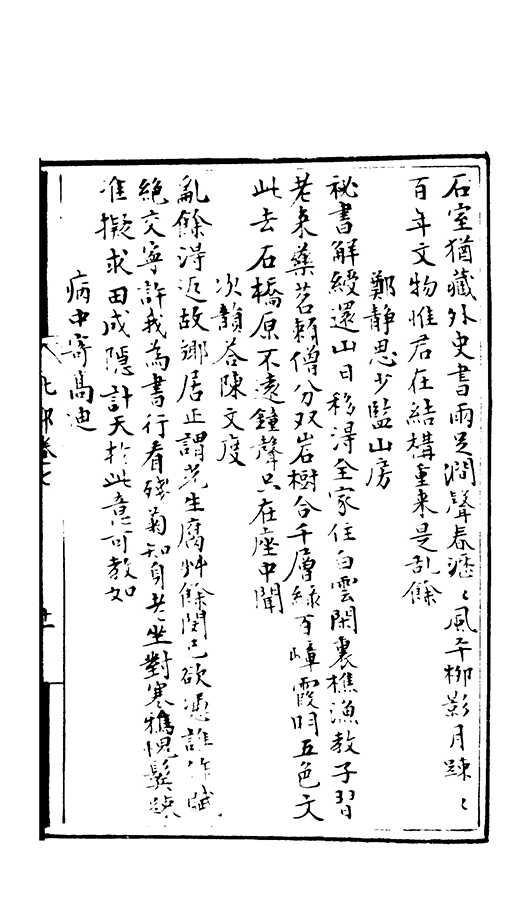 石室猶藏外史書雨足澗聲春瀝〻風平柳影月疎〻
百年文物惟君在結構重来是乱餘
鄭靜思少監山房
祕書解綬還山日移淂全家住白雲閑裏樵漁教子習
老来藥茗頼僧分双岩樹合千層綠百嶂霞明五色文
此去石橋原不遠鐘聲只在座中聞
次韻答陳文度
亂餘淂返故鄉居正謂光生腐艸餘閔已欲憑誰作賦
絶交寧許我為書行看殘菊知身老坐對寒鴉愧鬢疎
准擬求田成隱計天於此意可教如
病中寄馬迪
卷七